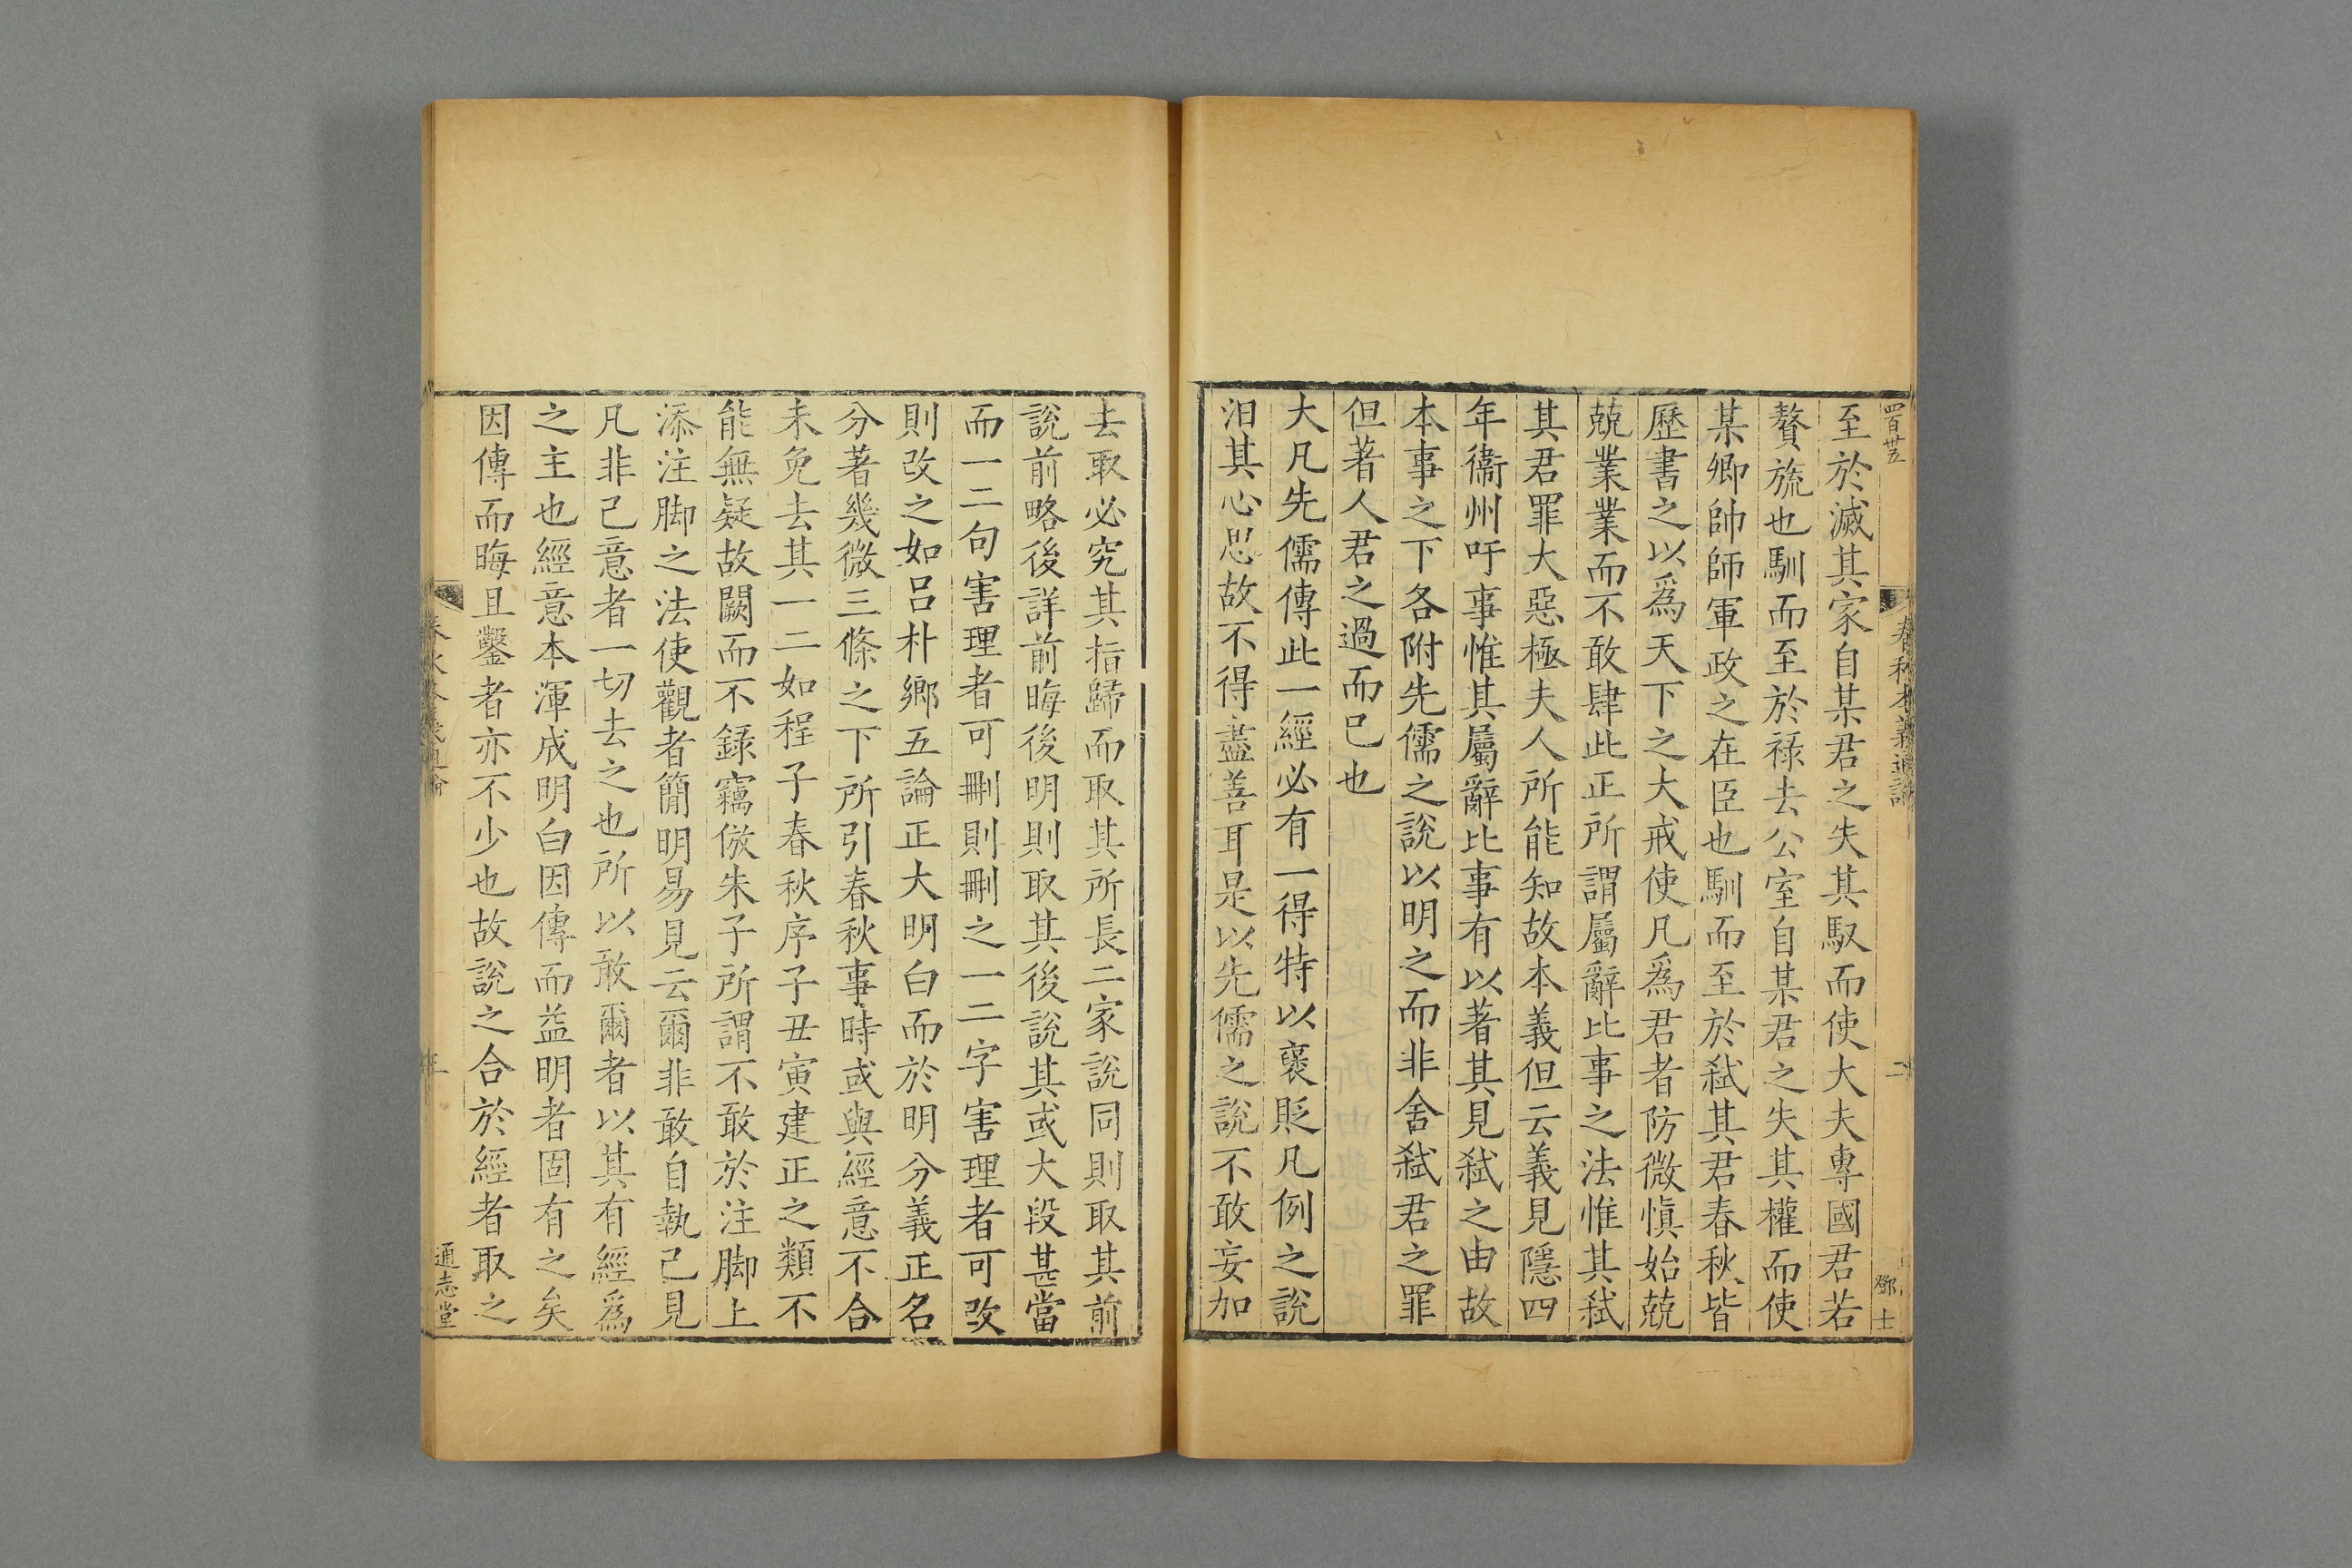 四百卅五
春秋本義通論
二
鄧士
至於滅其家自某君之失其馭而使大夫專國君若
贅旒也馴而至於祿去公室自某君之失其權而使
某卿帥師軍政之在臣也馴而至於弑其君春秋皆
歷書之以爲天下之大戒使凡爲君者防微愼始兢
兢業業而不敢肆此正所謂屬辭比事之法惟其弑
其君罪大惡極夫人所能知故本義但云義見隱四
年衞州吁事惟其屬辭比事有以著其見弑之由故
本事之下各附先儒之說以明之而非舍弑君之罪
但著人君之過而已也
大凡先儒傳此一經必有一得特以襃貶凡例之說
汨其心思故不得盡善耳是以先儒之說不敢妄加
去取必究其指歸而取其所長二家說同則取其前
說前略後詳前晦後明則取其後說其或大段甚當
而一二句害理者可刪則刪之一二字害理者可改
則改之如呂朴鄉五論正大明白而於明分義正名
分著幾微三條之下所引春秋事時或與經意不合
未免去其一二如程子春秋序子丑寅建正之類不
能無疑故闕而不錄竊倣朱子所謂不敢於注脚上
添注脚之法使觀者簡明易見云爾非敢自執己見
凡非己意者一切去之也所以敢爾者以其有經爲
之主也經意本渾成明白因傳而益明者固有之矣
因傳而晦且鑿者亦不少也故說之合於經者取之
通志堂